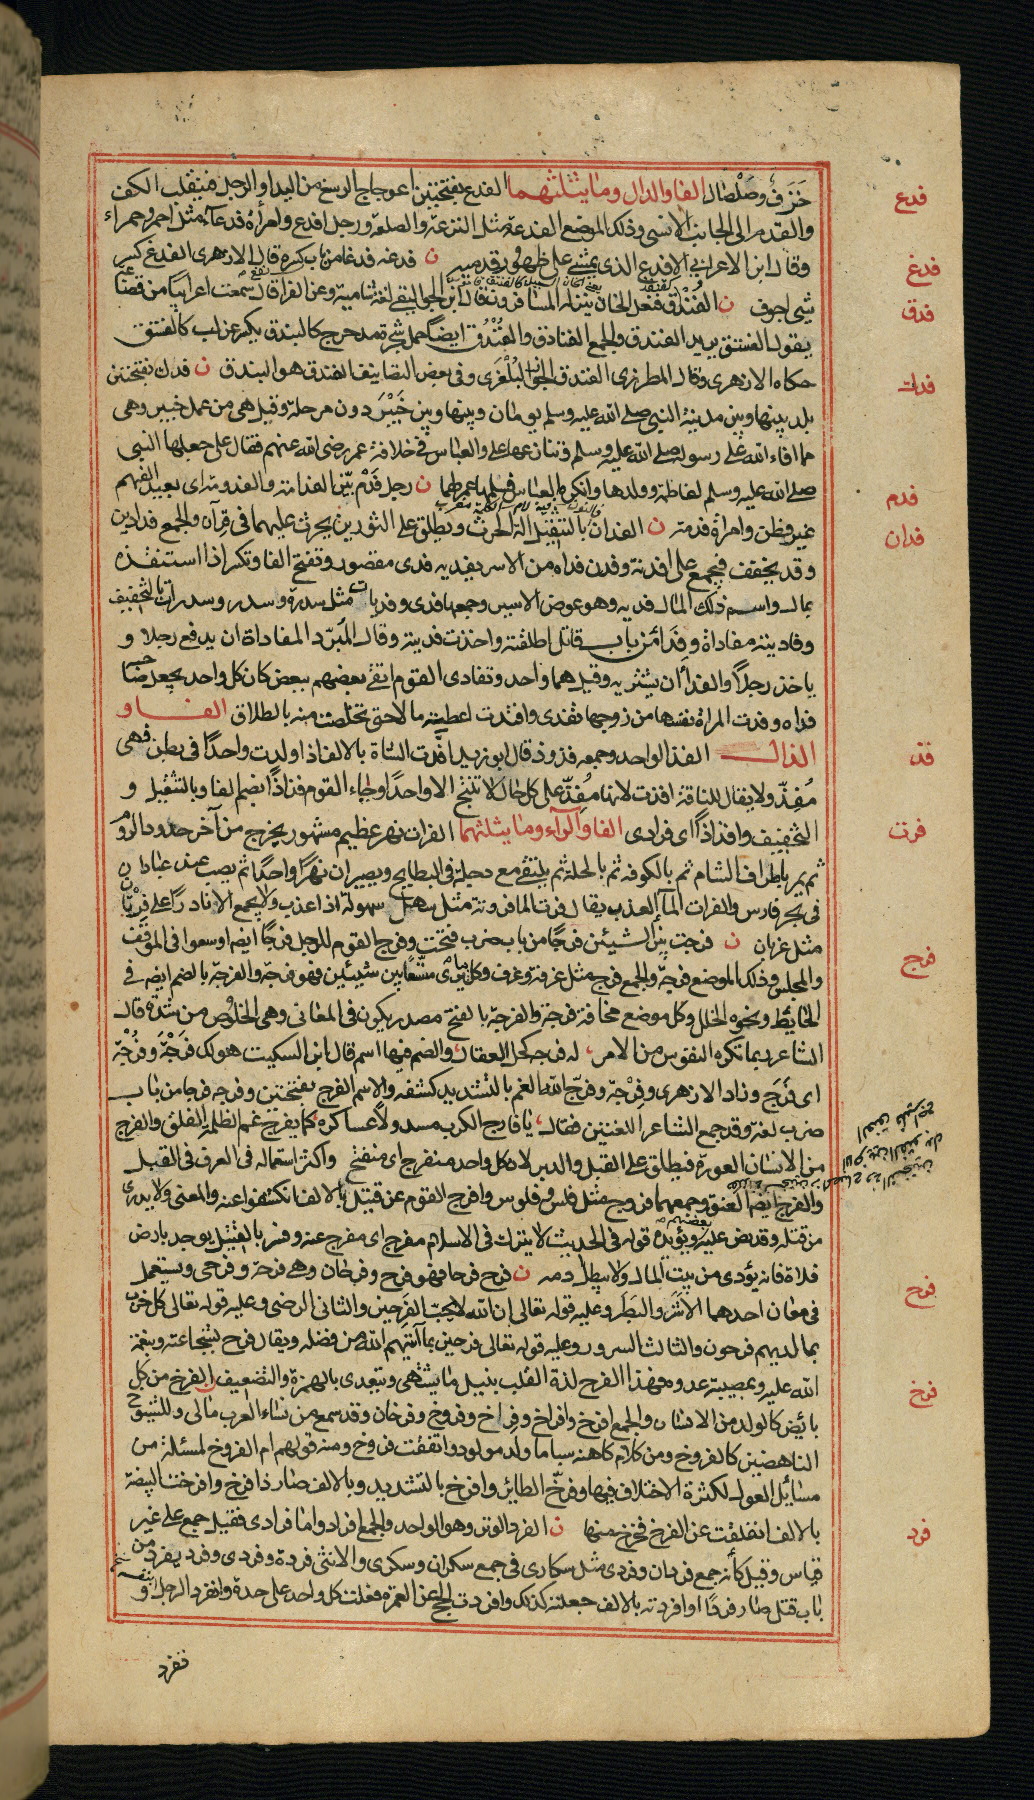 خزف وصلصال الفا والدال وما يثلثهما الفدع بفتحتين اعوجاج الرسغ من اليد او الرجل فينقلب الكف
والقدم الى الجانب الانسى وذلك الموضع الفدعة مثل النزعة والصلعة ورجل افدع وامرأة فدعآء مثل احمر وحمراء
وقال ابن الاعرابي الافدع الذى يمشى على ظهور قدميه ن فدغته فدغا من باب كسر قال الازهرى الفدغ كسر
شئ اجوف ن الفندق فنعل الخان ينزله المسافرون قال ابن الجواليقى لغة شامية وعن الفرا قال سمعت اعرابيا من قضاعة
يقول الفستق يريد الفندق والجمع الفنادق والفندق ايضا حمل شجرة مدحرج كالبندق يكسر عن لب كالفستق
حكاه الازهرى وقال المطرزى الفندق الجوز البلغرى وفى بعض التصانيف الفندق هو البندق ن فدك بفتحتين
بلد بينها وبين مدينة النبى صلى الله عليه وسلم يومان وبينها وبين خيبر دون مرحلة وقيل هى من عمل خيبر وهى
مما افاء الله على رسوله صلى الله عليه وسلم وتنازعها على والعباس فى خلافة عمر رضى الله عنهم فقال على جعلها النبى
صلى الله عليه وسلم لفاطمة وولدها وانكره العباس فسلمها عمر لهما ن رجل فدم بين الفدامة والفدومة اى بعيد الفهم
غير فطن وامرأة فدمة ن الفدان بالتثقيل آلة الحرث ويطلق على الثورين يحرث عليهما فى قران والجمع فدادين
وقد يخفف فيجمع على افدنة وفدن فداه من الاسر يفديه فدى مقصور وتفتح الفا وتكسر اذا استنقذه
بمال واسم ذلك المال فدية وهو عوض الاسير وجمعها فدى وفديات مثل سدرة وسدر وسدرات بالتخفيف
وفاديته مفاداة وفداء من باب قاتل اطلقته واخذت فديته وقال المبرد المفاداة ان يدفع رجلا و
ياخذ رجلا والفدا أن يشتريه وقيل هما واحد وتفادى القوم اتقى بعضهم ببعض كان كل واحد يجعل صاحبه
فداه وفدت المراة نفسها من زوجها تفدى وافتدت اعطيته مالا حتى تخلصت منه بالطلاق الفا و
الذال الفذ الواحد وجمعه فذوذ قال ابو زيد افذت الشاة بالالف اذا ولدت واحدا فى بطن فهى
مفذ ولا يقال للناقة افذت لانها مفذ على كل حال لا تنتج الا واحدا وجاء القوم فذاذا بضم الفا وبالتثقيل و
التخفيف وافذاذا اى فرادى الفا والرآء وما يثلثهما الفرات نهر عظيم مشهور يخرج من آخر حدود الروم
ثم يمر باطراف الشام ثم بالكوفة ثم بالحلة ثم يلتقى مع دجلة فى البطايح ويصيران نهرا واحدا ثم يصب عند عبادان
فى بحر فارس والفرات المآء العذب يقال فرت الما فروتة مثل سهل سهولة اذا عذب ولا يجمع الا نادرا على فرتان
مثل غربان ن فرجت بين الشيئين فرجا من باب ضرب فتحت وفرج القوم للرجل فرجا ايضا اوسعوا فى الموقف
والمجلس وذلك الموضع فرجة والجمع فرج مثل غرفة وغرف وكل منفرج بين شيئين فهو فرجة والفرجة بالضم ايضه فى
الحايط ونحوه الخلل وكل موضع مخافة فرجة والفرجة بالفتح مصدر يكون فى المعانى وهى الخلوص من شدة قال
الشاعر ربما تكره النفوس من الامر له فرجة كحل العقال والضم فيها اسم قال ابن السكيت هو لك فرجة وفرجة
اى فرج وزاد الازهرى وفرجة وفرج الله الغم بالتشديد كشفه والاسم الفرج بفتحتين وفرجه فرجا من باب
ضرب لغة وقد جمع الشاعر اللغتين فقال يا فارج الكرب مسدولا عساكره كما يفرج غم الظلمة الفلق والفرج
من الانسان العورة فيطلق على القبل والدبر لان كل واحد منفرج اى منفتح واكثر استعماله فى العرف فى القبل
والفرج ايضا الفتق وجمعهما فروج مثل فلس وفلوس وافرج القوم عن قتيل بالالف انكشفوا عنه والمعنى ولا يدرى
من قتله وقد نص عليه ويؤيده قوله فى الحديث لا يترك فى الاسلام مفرج اى مفرج عنه وفسر بالقتيل يوجد بارض
فلاة فانه يؤدى من بيت المال ولا يبطل دمه ن فرح فرحا فهو فرح وفرحان وهى فرحة وفرحى ويستعمل
فى معان احدها الاشر والبطر وعليه قوله تعالى ان الله لا يحب الفرحين والثانى الرضى وعليه قوله تعالى كل حزب
بما لديهم فرحون والثالث السرور وعليه قوله تعالى فرحين بما آتيهم الله من فضله ويقال فرح بشجاعته وبنعمة
الله عليه وبمصيبة عدوه فهذا الفرح لذة القلب بنيل ما يشتهى ويتعدى بالهمزة والتضعيف الفرخ من كل
بائض كالولد من الانسان والجمع افرخ وافراخ وفراخ وفروخ وفرخان وقد سمع من نساء العرب مالى وللشيوخ
الناهضين كالفروخ ومن كلام كاهنة سبا ما ولد مولود وانقفت فروخ ومنه قولهم ام الفروخ لمسئلة من
مسائل العول لكثرة الاختلاف فيها وفرخ الطائر وافرخ بالتشديد وبالالف صار ذا فرخ وافرخت البيضة
بالالف انفلقت عن الفرخ فخرج منها ن الفرد الوتر وهو الواحد والجمع افراد واما فرادى فقيل جمع على غير
قياس وقيل كأنه جمع فردان وفردى مثل سكارى فى جمع سكران وسكرى والانثى فردة وفردى وفرد يفرد من
باب قتل صار فردا وافردته بالالف جعلته كذلك وافردت الحج عن العمرة فعلت كل واحد على حدة وانفرد الرجل و
تفرد
فدع
فدغ
فدق
فدك
فدم
فدان
فذ
فرت
فرج
فرح
فرخ
فرد